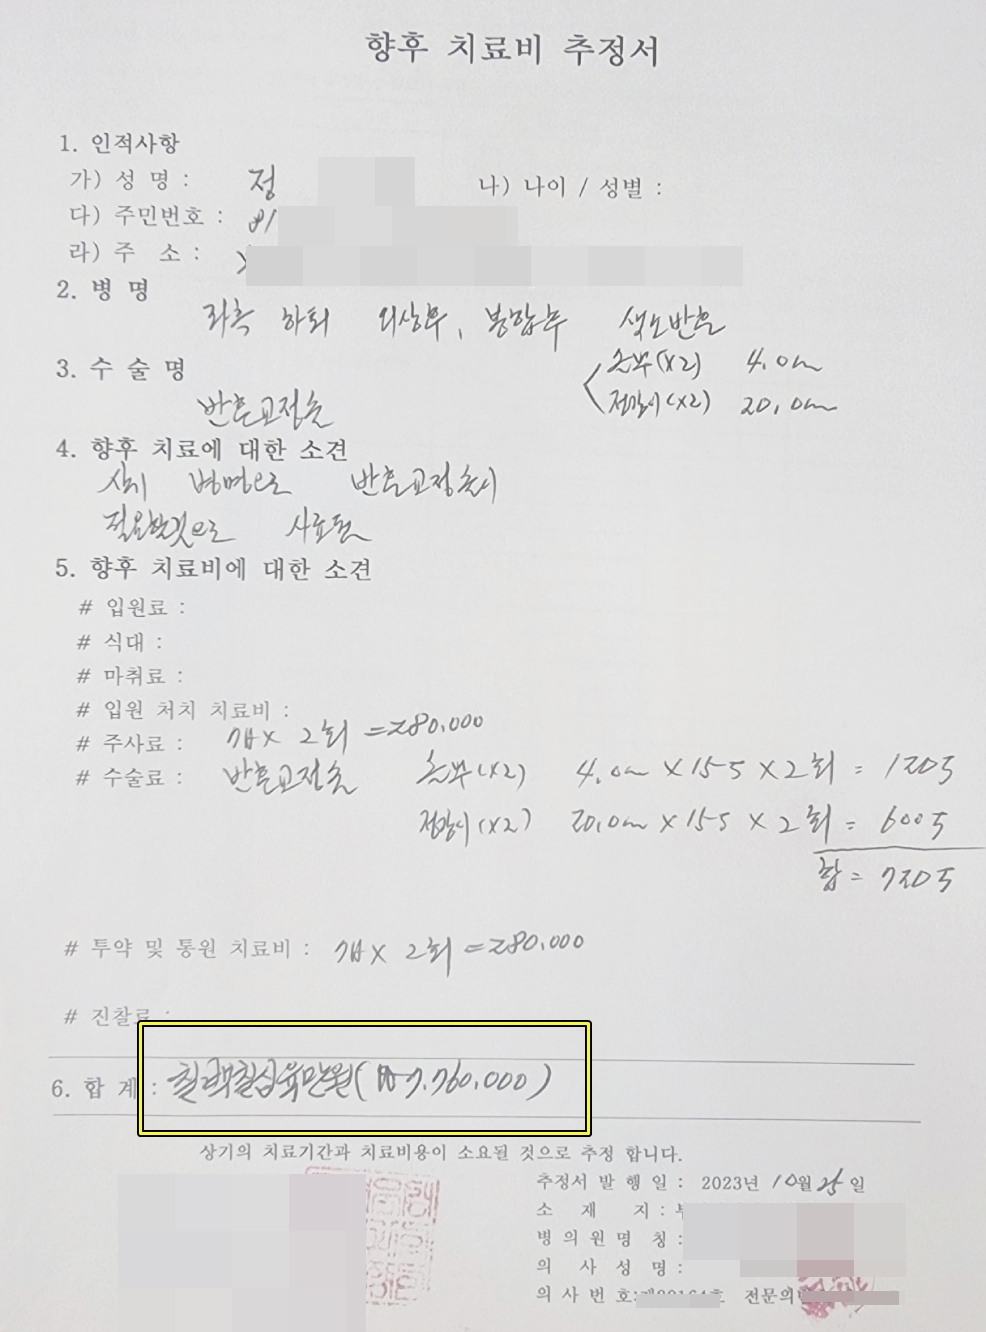 향후 치료비 추정서
1. 인적사항
가) 성 명 : 정
나) 나이 / 성별 :
다) 주민번호 :
라) 주 소 :
2. 병 명
좌측 하퇴 외상후, 봉합후 색소반흔
손부(x2) 4.0cm
정강이(x2) 20.0cm
3. 수 술 명
반흔교정술
4. 향후 치료에 대한 소견
상기 병명으로 반흔교정술시
필요할것으로 사료됨
5. 향후 치료비에 대한 소견
# 입원료 :
# 식대 :
# 마취료 :
# 입원 처치 치료비 :
# 주사료 : x 2회 = 280,000
# 수술료 : 반흔교정술 손부(x2) 4.0cm x 15만 x 2회 = 120만
정강이(x2) 20.0cm x 15만 x 2회 = 600만
합 = 720만
# 투약 및 통원 치료비 : x 2회 = 280,000
# 진찰료 :
6. 합 계 : 칠백칠십육만원(₩7,760,000)
상기의 치료기간과 치료비용이 소요될 것으로 추정 합니다.
추정서 발 행 일 : 2023년 10월 25일
소 재 지 :
병 의 원 명 칭 :
의 사 성 명 :
의 사 번 호 : 전문의